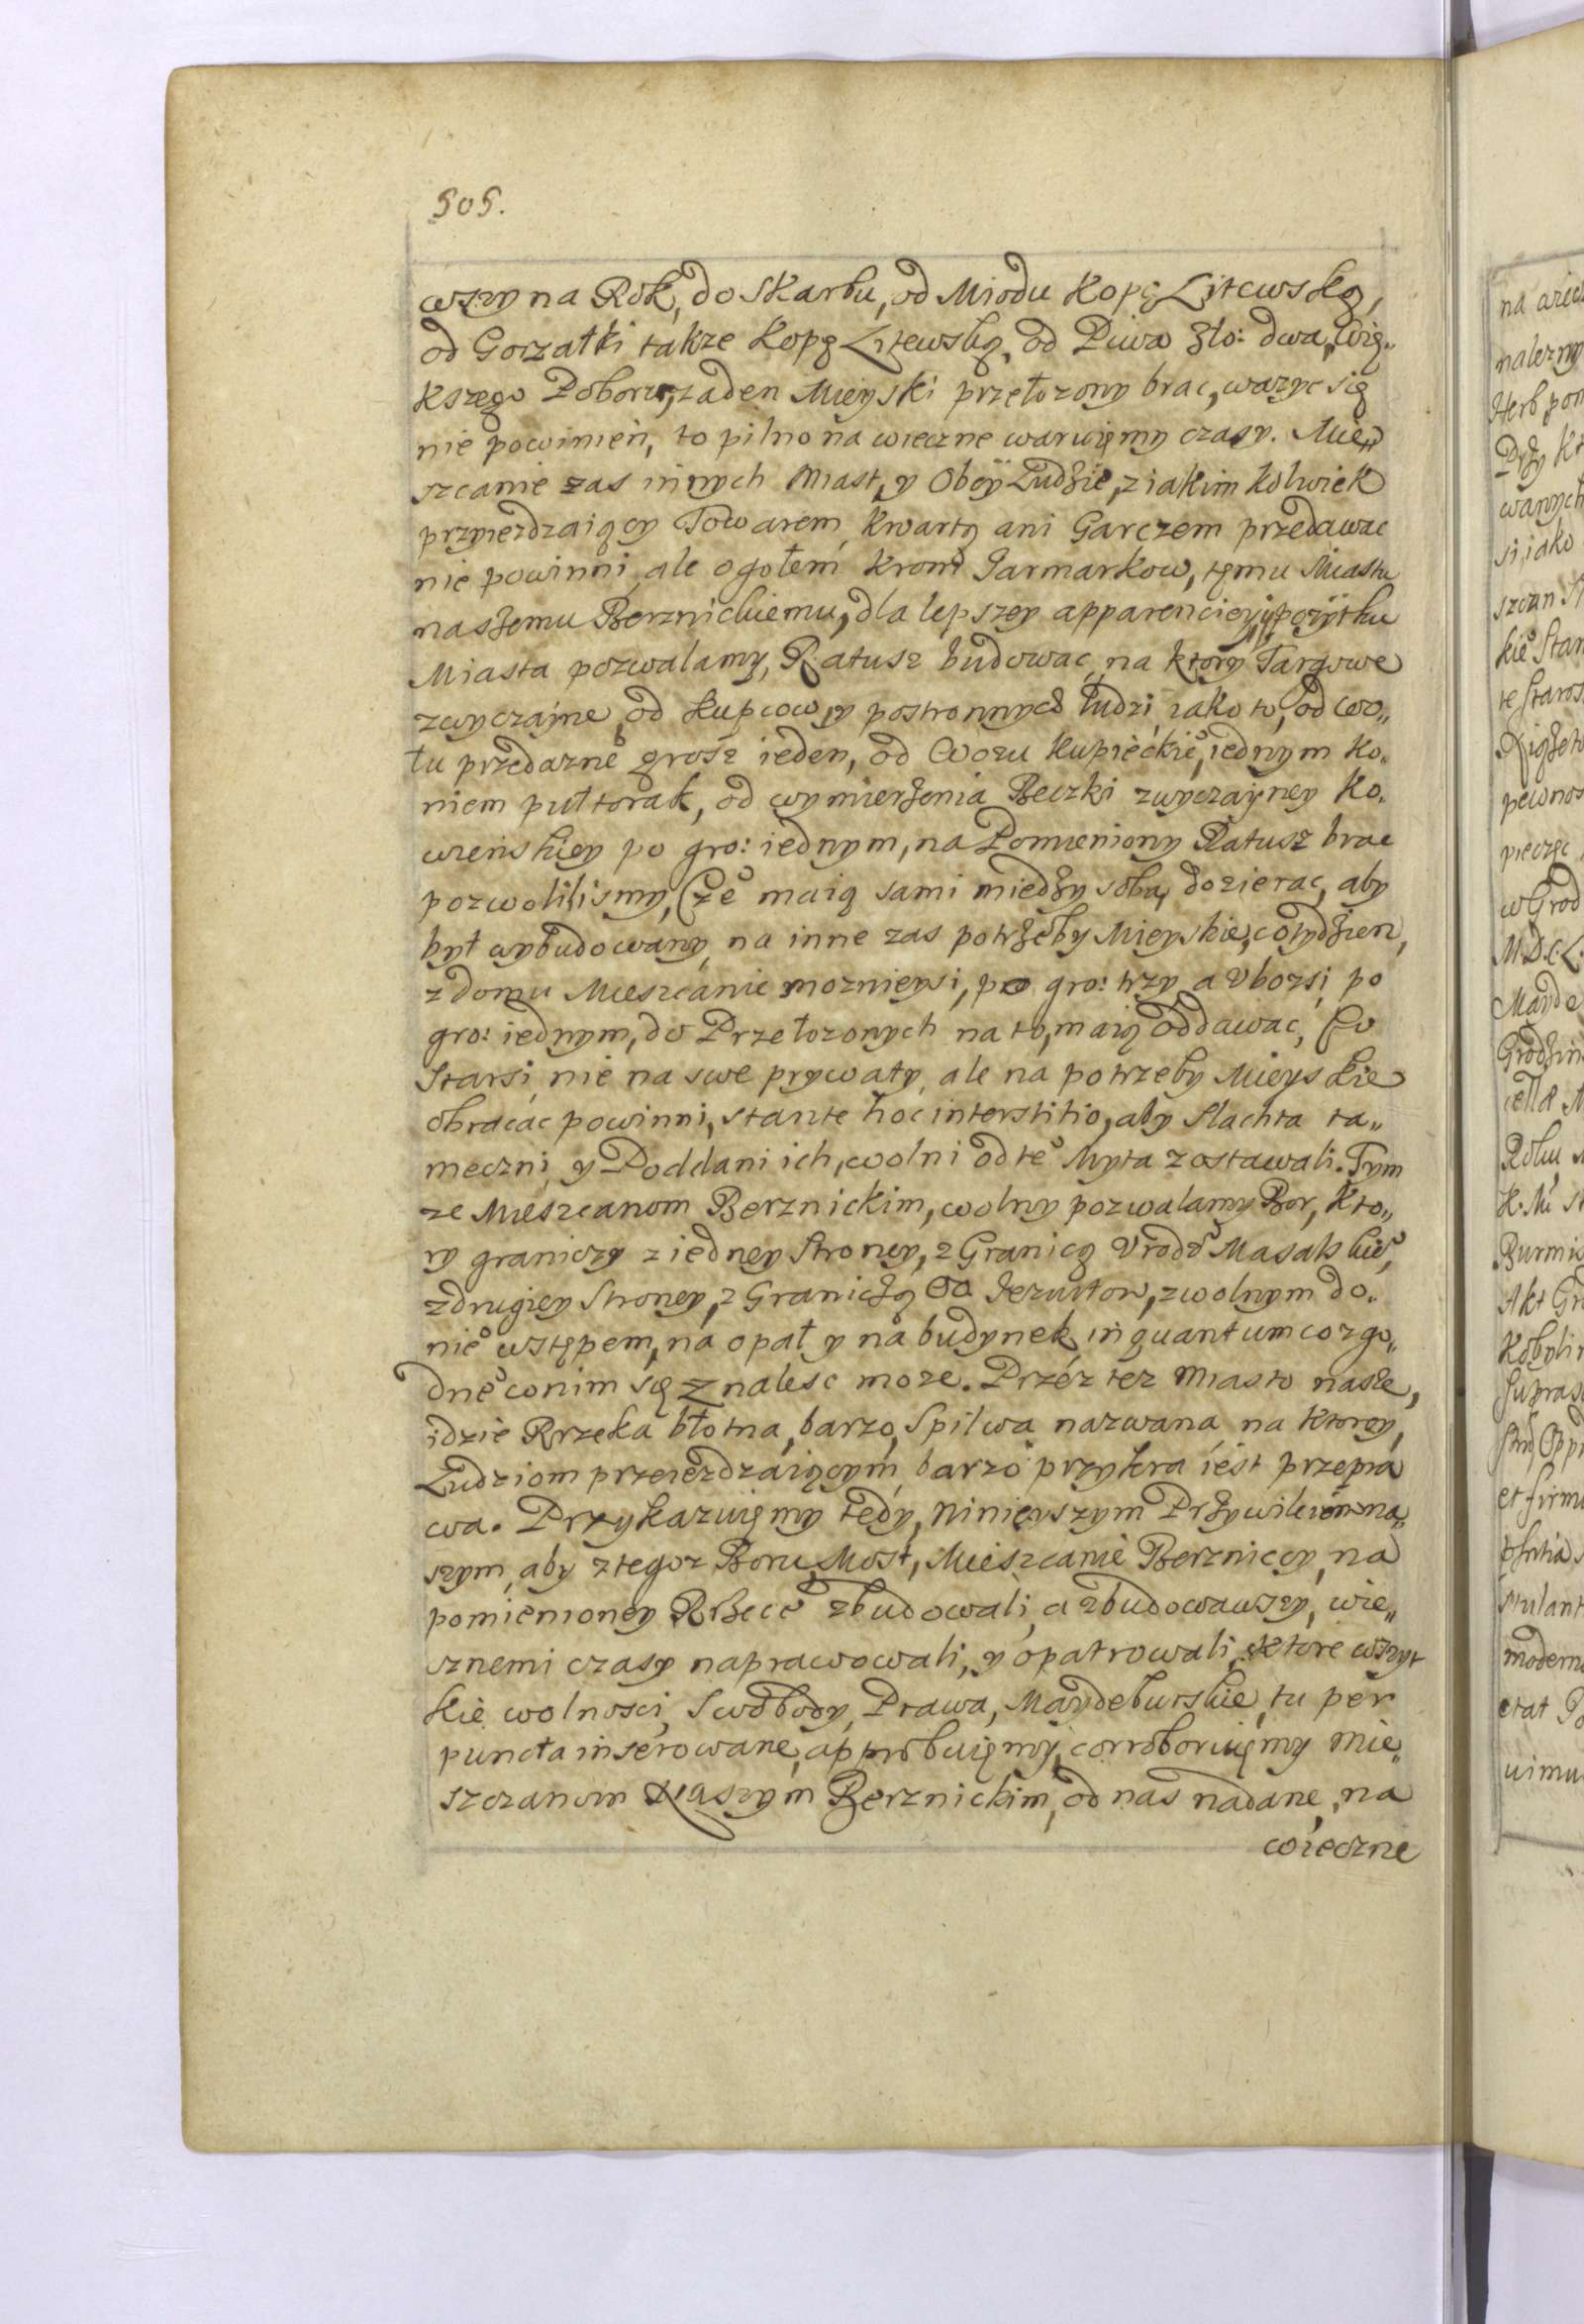 505.
wszy na Rok, do Skarbu, od Miodu Kopę Litewską,
od Gorzałki takze Kopę Litewską, od Piwa Zło: dwa, wię„
kszego Poboru, zaden Mieyski przełozony brac, wazyc się
nie powinien, to pilno na wieczne waruięmy czasy. Mie„
szcanie zas innych Miast, y Obcÿ Ludzie, z iakim kolwiek
przyiezdzaiący Towarem, kwartą ani Garczem przedawac
nie powinni, ale ogołem krom Jarmarkow, tęmu Miastu
naszemu Berznickiemu, dla lepszey apparencieÿ ÿ pozÿtku
Miasta pozwalamy, Ratusz budowac, na ktory Targowe
zwyczaÿne, od Kupcow, y postronnych ludzi, iako to, od wo„
łu przedazneº grosz ieden, od Wozu Kupieckieº, iednym Ko„
niem pułtorak, od wymierzenia Beczki zwyczaÿney Ko„
wienskiey po gro: iednym, na Pomieniony Ratusz brac
pozwolilismy, Czeº maią sami miedzy sobą, dozierac, aby
był wybudowany, na inne zas potrzeby Mieyskie, co tydzien,
z domu Mieszcanie moznieysi, po gro: trzy, a Ubozsi, po
gro: iednym, do Przełozonych na to, maią oddawac, Co
Starsi, nie na swe prywaty, ale na potrzeby Mieyskie
obracac powinni, stante hoc interstitio, aby Slachta ta„
meczni, y Poddani ich, wolni od teº Myta zostawali. Tym
ze Mieszcanom Berznickim, wolny pozwalamy Bor, kto„
ry graniczy z iedney Strony, z Granicą Urodzº Masalskieº,
z drugiey Stroney, z Graniczą OO. Jezuitow, z wolnym do„
nieº wstępem, na opał y na budynek, in quantum co zgo„
dneº co nim się Znalesc moze. Przéz tez Miasto nasze,
idzie Rrzeka błotna, barzo, Spilwa nazwana, na ktorey,
Ludziom przeiezdzaiącym, barzo przykra iest przepra
wa. Przykazuięmy tedy, ninieyszym Przywileiem na„
szym, aby z tegoz Boru, Most, Mieszcanie Berzniccy, na
pomienioney Rzece zbudowali, a zbudowawszy, wie„
sznemi czasy naprawowali, y opatrowali, ktore wszyt
kie wolnosci, Swobody, Prawa, Maydeburskie, tu per
puncta inserowane, approbuięmy, corroboruięmy Mie„
szczanom Naszym Berznickim, od nas nadane, na
wieczne
na wiecz
nalezny
Herb pon
wanych
si iako
pewnos
pieczęc
w Grod
Mayde
Grodzin
Roku
Burmis
Akt Gr
Kobyli
et firm
stulant
moderne
etat
uimu